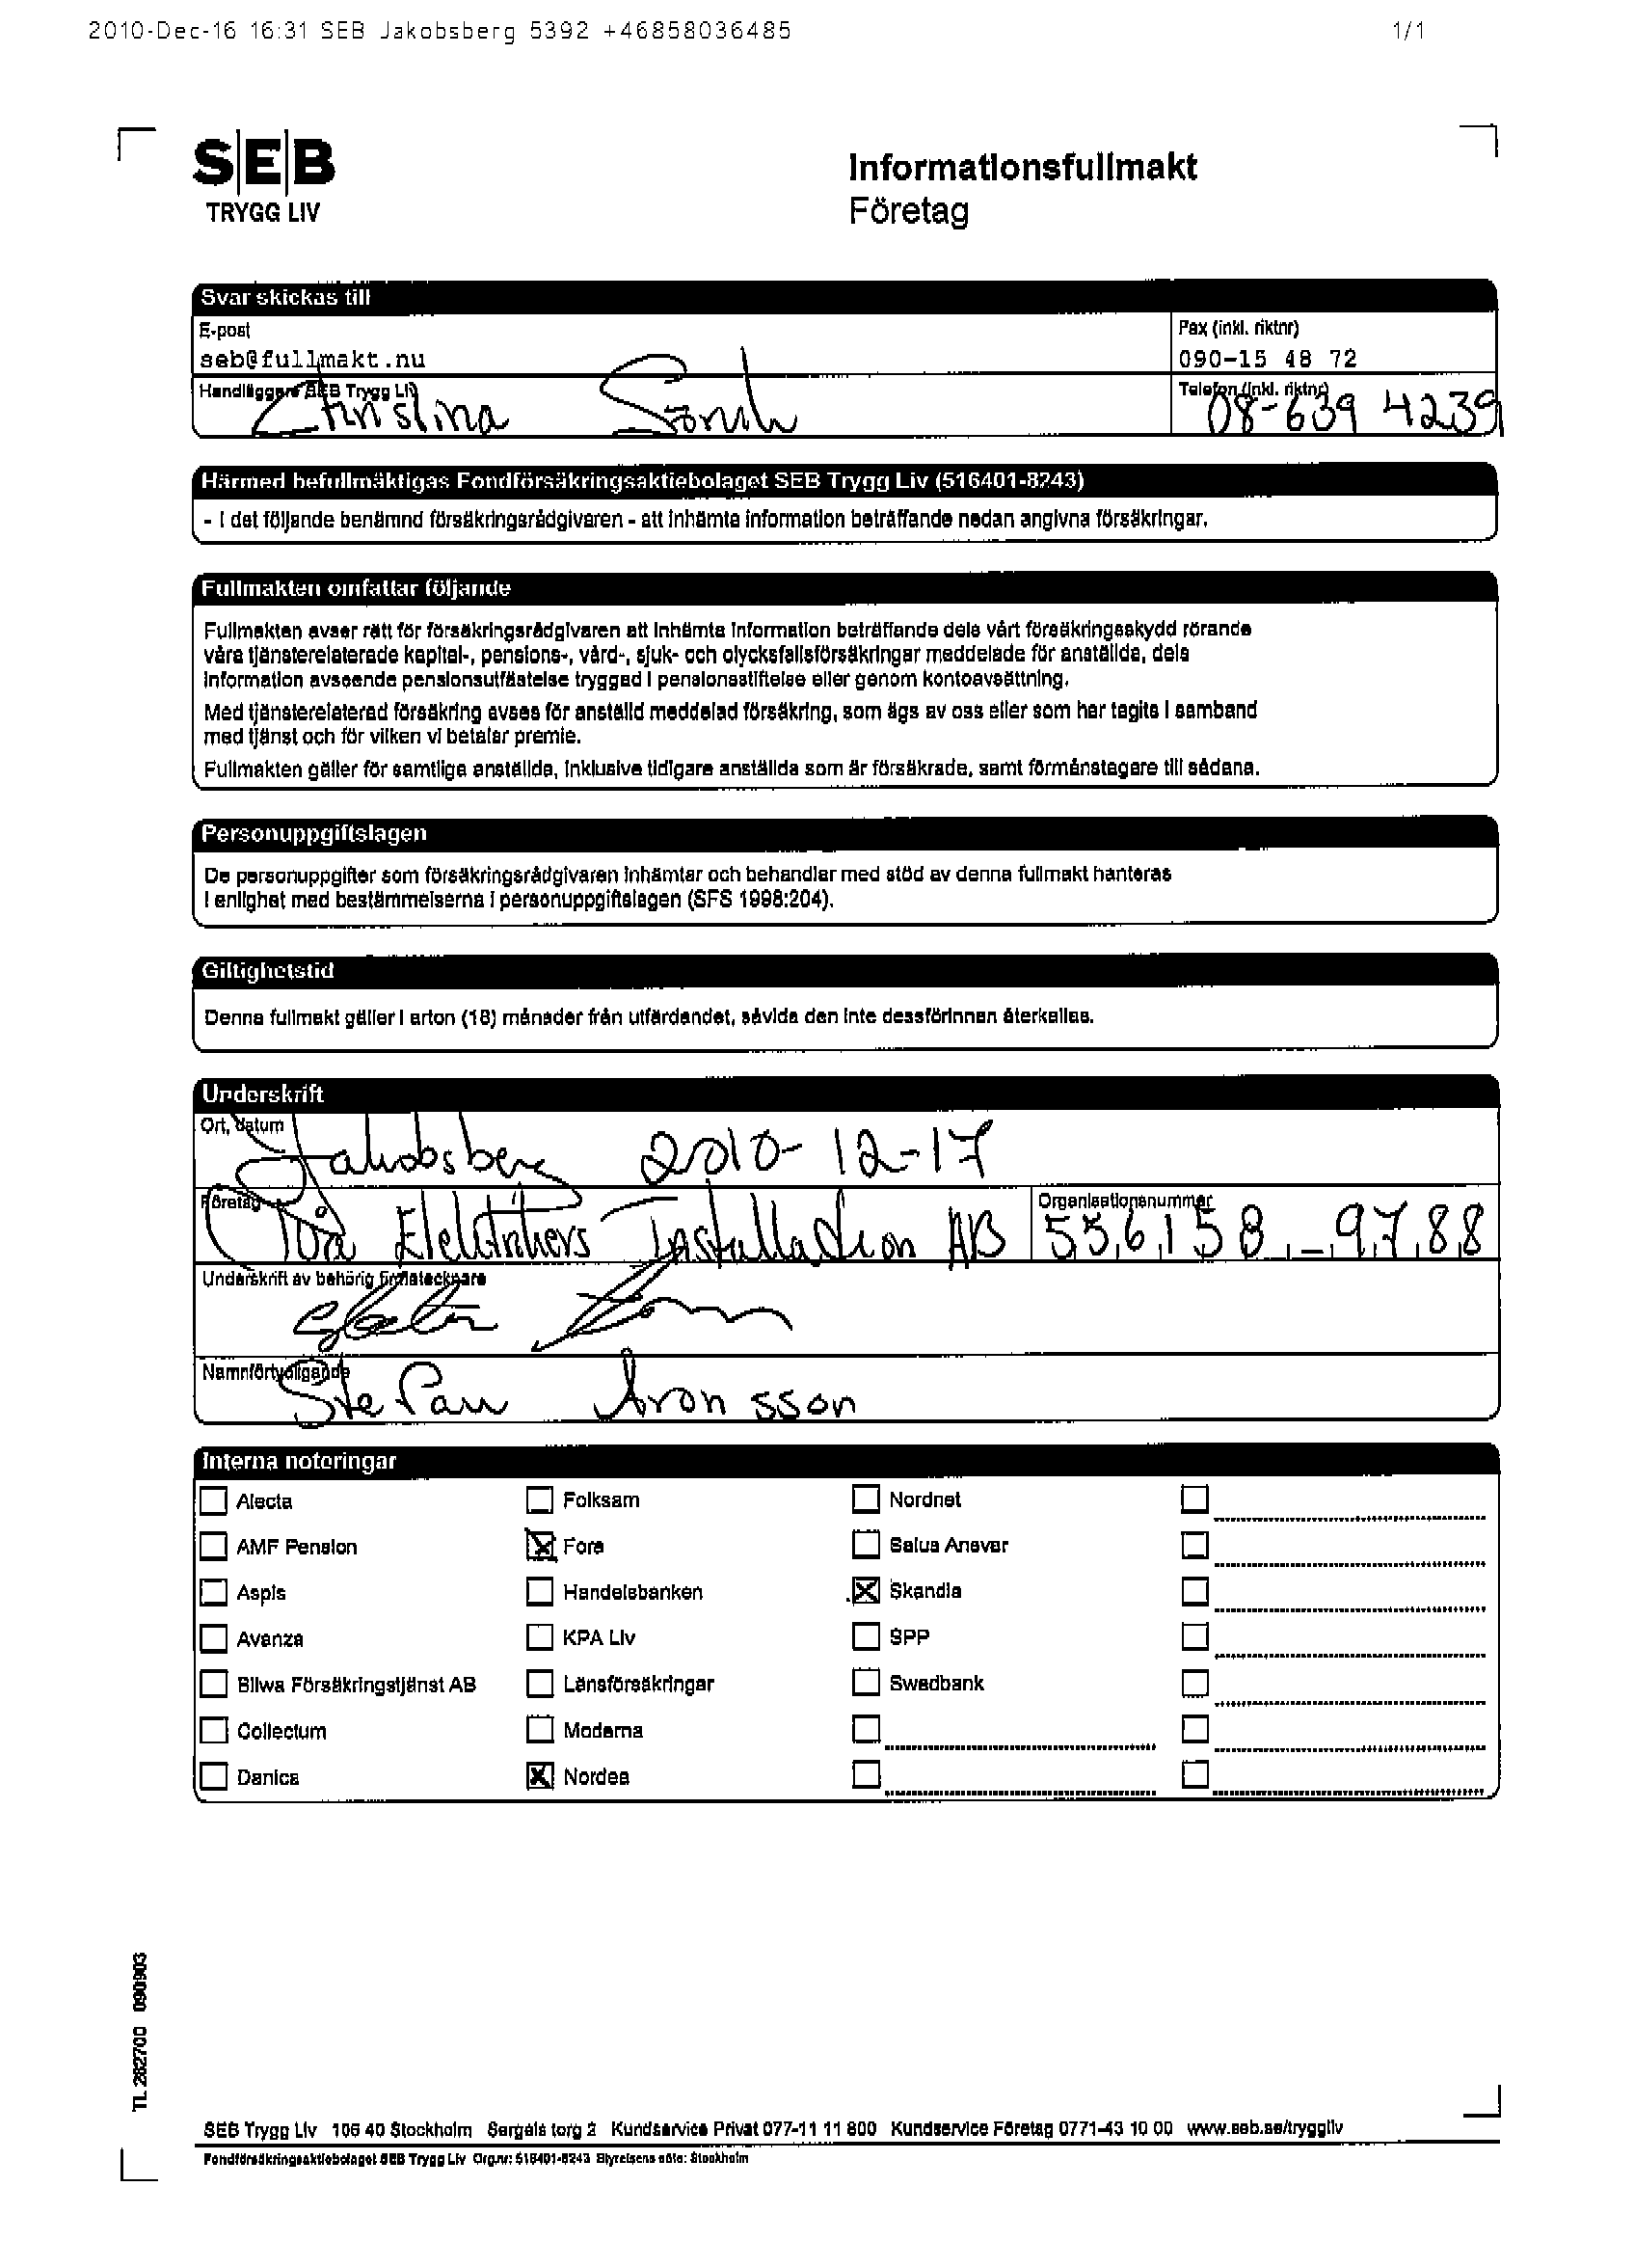 2010-Dec-16 16:31 SEB Jakobsberg 5392 +46858036485 1/1
SEB
TRYGG LIV
Informationsfullmakt
Företag
Svar skickas till
E-post
seb@fullmakt.nu
Fax (inkl. riktnr)
090-15 48 72
Handläggare SEB Trygg Liv
Telefon (inkl. riktnr)
08-639 4239
Härmed befullmäktigas Fondförsäkringsaktiebolaget SEB Trygg Liv (516401-8243)
- i det följande benämnd försäkringsrådgivaren - att inhämta information beträffande nedan angivna försäkringar.
Fullmakten omfattar följande
Fullmakten avser rätt för försäkringsrådgivaren att inhämta information beträffande dels vårt försäkringsskydd rörande
våra tjänsterelaterade kapital-, pensions-, vård-, sjuk- och olycksfallsförsäkringar meddelade för anställda, dels
information avseende pensionsutfästelse tryggad i pensionsstiftelse eller genom kontoavsättning.
Med tjänsterelaterad försäkring avses för anställd meddelad försäkring, som ägs av oss eller som har tagits i samband
med tjänst och för vilken vi betalar premie.
Fullmakten gäller för samtliga anställda, inklusive tidigare anställda som är försäkrade, samt förmånstagare till sådana.
Personuppgiftslagen
De personuppgifter som försäkringsrådgivaren inhämtar och behandlar med stöd av denna fullmakt hanteras
i enlighet med bestämmelserna i personuppgiftslagen (SFS 1998:204).
Giltighetstid
Denna fullmakt gäller i arton (18) månader från utfärdandet, såvida den inte dessförinnan återkallas.
Underskrift
Ort, datum
Jakobsberg 2010-12-17
Företag
Elektrikers Installation AB
Organisationsnummer
556158-9788
Underskrift av behörig firmatecknare
Namnförtydligande
Stefan Aronsson
Interna noteringar
Alecta Folksam Nordnet
AMF Pension Fora Salus Ansvar
Aspis Handelsbanken Skandia
Avanza KPA Liv SPP
Bliwa Försäkringstjänst AB Länsförsäkringar Swedbank
Collectum Moderna
Danica Nordea
TL 282700 090903
SEB Trygg Liv 106 40 Stockholm Sergels torg 2 Kundservice Privat 077-11 11 800 Kundservice Företag 0771-43 10 00 www.seb.se/tryggliv
Fondförsäkringsaktiebolaget SEB Trygg Liv Org.nr: 516401-8243 Styrelsens säte: Stockholm